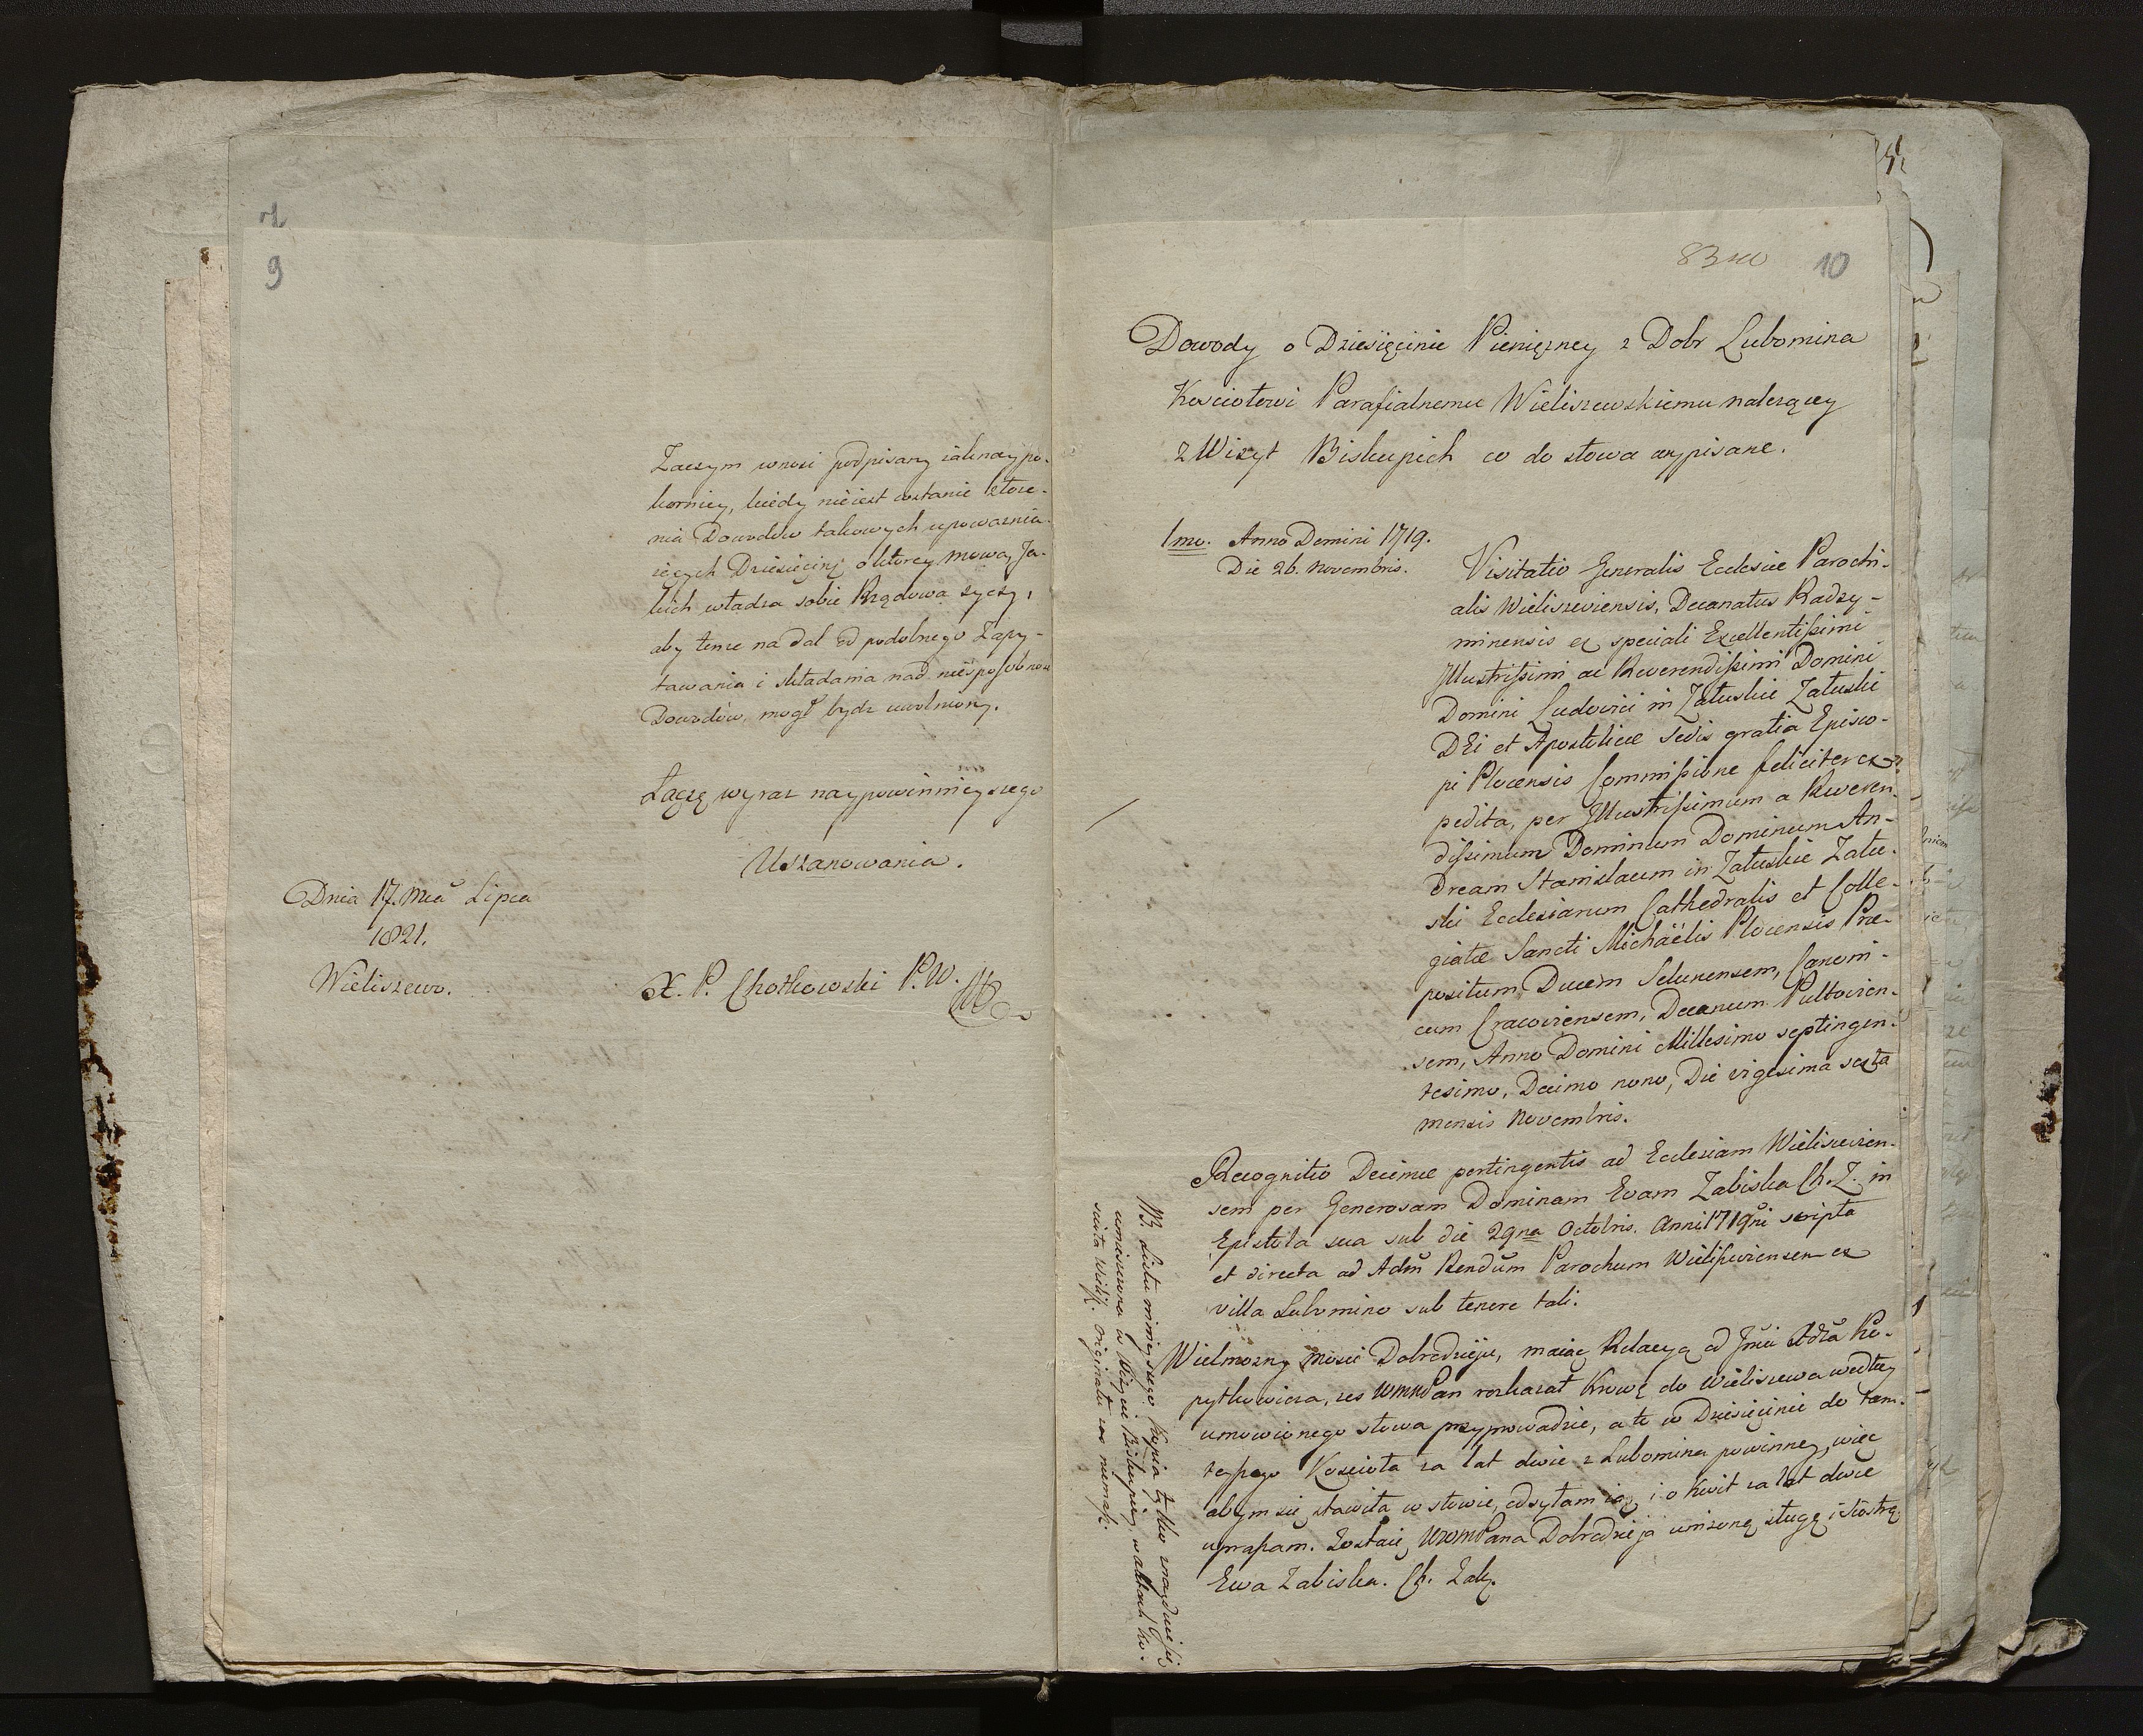 9
Zaczym wnosi podpisany iaknaypo-
kornicy, kiedy nieiest wstanie złoże-
nia Dowodów takowych upowaznia-
iących Dziesięcinę o ktorey mowa, Ja-
kich władza sobie Rządowa życzy,
aby tenże na dal od podobnego Zapy-
tawania i składania nad niesposobnos
Dowodów, mogł bydz uwolniony.
Łączę wyraz naypowinnieyszego
Uszanowania.
Dnia 17. Mca Lipca
1821.
Wieliszewo.
X. P. Chotkowski P.W.
83
10
Dowody o Dziesięcinie Pieniężney z Dobr Lubomina
Kosciołowi Parafialnemu Wieliszewskiemu należącey
z Wizyt Biskupich co do słowa wypisane.
1mo. Anno Domini 1719.
Die 26. Novembris.
Visitatio Generalis Ecclesiæ Parochi-
alis Wieliszeviensis, Decanatus Radzy-
minensis ex speciali Excellentissimi
Illustrissimi ac Reverendissimi Domini
Domini Ludovici in Załuskie Załuski
DEi et Apostolicæ Sedis gratia Episco-
pi Plocensis Commissione feliciter ex-
pedita, per Illustrissimum a Reveren-
dissimum Dominum Dominum An-
dream Stanislaum in Załuskie Zału-
ski Ecclesiarum Cathedralis et Colle-
giatæ Sancti Michaëlis Plocensis Præ-
positum Ducem Selunensem, Canoni-
cum Cracoviensem, Decanum Pultovien-
sem, Anno Domini Millesimo septingen-
tesimo, Decimo nono, Die vigesima sexta
mensis Novembris.
Recognitio Decimæ pertingentis ad Ecclesiam Wieliszevien-
sem per Generosam Dominam Evam Zabiska Ch. Z. in
Epistola sua sub die 29na Octobris. Anni 1719ni scripta
et directa ad Adm Rendum Parochum Wielisseviensem ex
villa Lubomino sub tenore tali.
Wielmozny Mosci Dobrodzieju, maiąc Relacyą od Jmci Xdza Ko-
pytkowicza, zes WMMPan rozkazał Krowę do Wieliszewa według
umowionego słowa przyprowadzic, a to w Dziesięcinie do tam-
teyszego Koscioła za lat dwie z Lubomina powinney, więc
abym się stawiła w słowie, odsyłam ią, i o Kwit za lat dwie
upraszam. Zostaię WMMPana Dobrodzieja unizoną sługą i Siostrą
Ewa Zabiska. Ch. Zak.
NB. Listu ninieyszego Kopia tylko znayduie się
umieszczona w Wizycie Biskupiey w aktach ko-
scioła Wielisz. Originału zas niemasz.